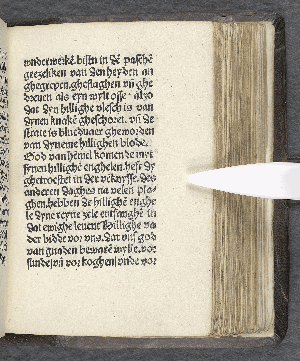 vnderwerkē. bistu in dē pasche
geezelken van den heyden an
ghegrepen. gheslaghen vn̄ ghe
dreuen als eyn wylt osse. also
dat dyn hillighe vlesch is van
dynen knakē gheschoret. vn̄ de
strate is blueduaer gheworden
van dyneme hillighen blode.
God van hēmel komende myt
synen hillighē enghelen. heft dy
ghetroestet in der vēknysse. des
anderen daghes na velen pla
ghen. hebben de hillighē enghe
le dyne reyne zele entfanghē in
dat ewighe leuent Hillighe va
der bidde vor vns. dat vns god
van gnaden beware wylle. vor
sunden vn̄ vor koghen vnde vor